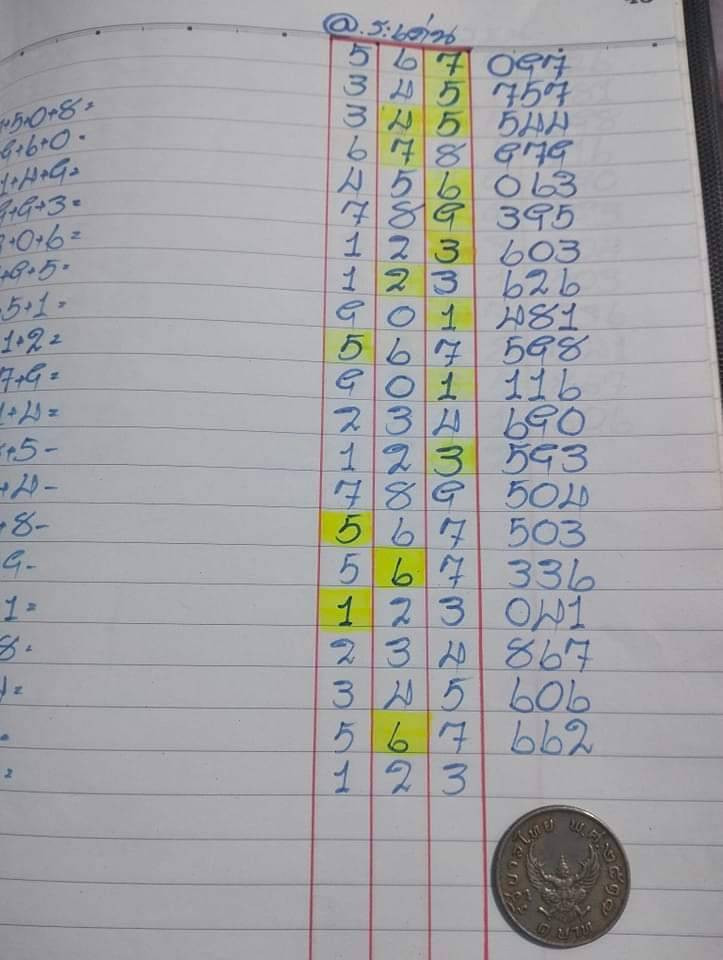 @.ระเด่น
5 6 7 097
3 4 5 757
+5+0+8= 3 4 5 544
9+6+0= 6 7 8 979
1+4+9= 4 5 6 063
9+9+3= 7 8 9 395
+0+6= 1 2 3 603
+9+5= 1 2 3 626
5+1= 9 0 1 481
1+2= 5 6 7 598
7+9= 9 0 1 116
1+4= 2 3 4 690
+5- 1 2 3 593
+4- 7 8 9 504
+8- 5 6 7 503
9- 5 6 7 336
1= 1 2 3 041
8= 2 3 4 867
= 3 4 5 606
5 6 7 662
= 1 2 3
รัฐบาลไทย พ.ศ.๒๕๑๗
๑ บาท